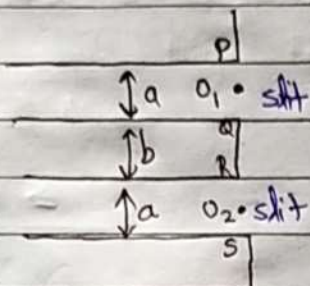 P
a O₁ • slit
Q
b
R
a O₂ • slit
S